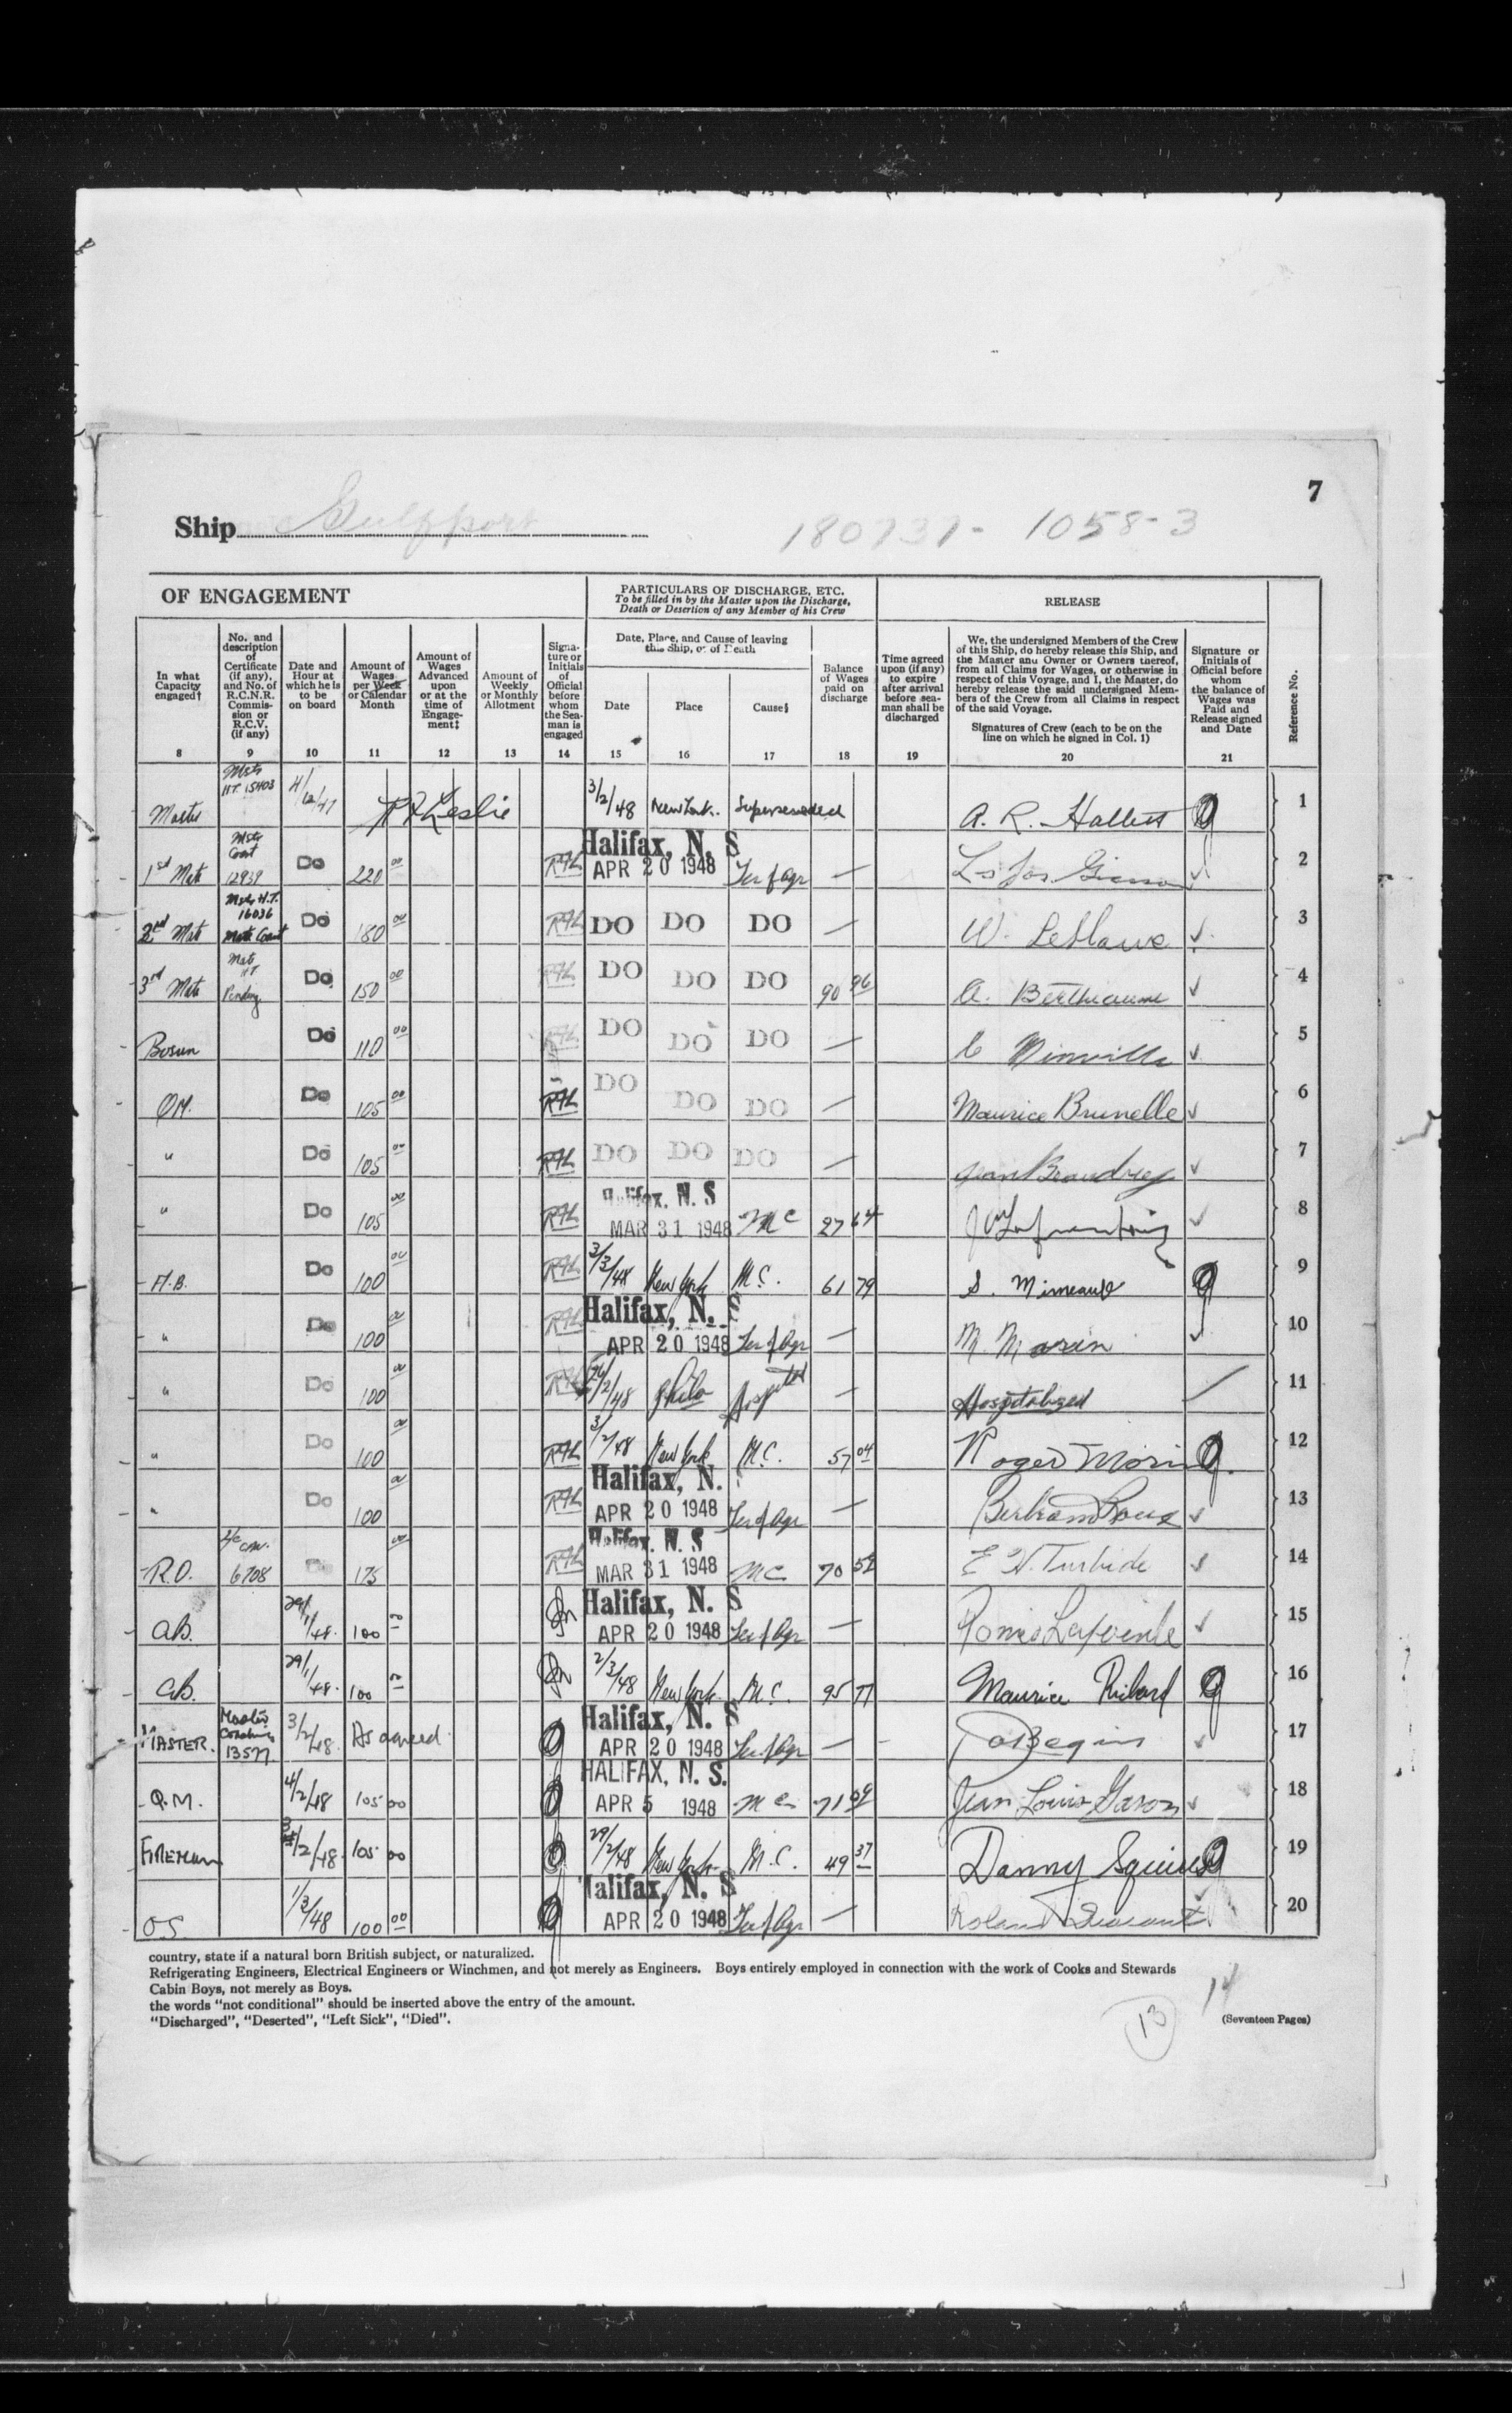 7
Ship Gulfport
180737- 1058-3
OF ENGAGEMENT
PARTICULARS OF DISCHARGE, ETC.
To be filled in by the Master upon the Discharge,
Death or Desertion of any Member of his Crew
RELEASE
In what Capacity engaged†
No. and description of Certificate (if any), and No. of R.C.N.R. Commission or R.C.V. (if any)
Date and Hour at which he is to be on board
Amount of Wages per Week or Calendar Month
Amount of Wages Advanced upon or at the time of Engagement‡
Amount of Weekly or Monthly Allotment
Signature or Initials of Official before whom the Seaman is engaged
Date, Place, and Cause of leaving this Ship, or of Death
Date
Place
Cause§
Balance of Wages paid on discharge
Time agreed upon (if any) to expire after arrival before seaman shall be discharged
We, the undersigned Members of the Crew of this Ship, do hereby release this Ship, and the Master and Owner or Owners thereof, from all Claims for Wages, or otherwise in respect of this Voyage, and I, the Master, do hereby release the said undersigned Members of the Crew from all Claims in respect of the said Voyage.
Signatures of Crew (each to be on the line on which he signed in Col. 1)
Signature or Initials of Official before whom the balance of Wages was Paid and Release signed and Date
Reference No.
8 9 10 11 12 13 14 15 16 17 18 19 20 21
Master H.T. 15403 4/12/47 Leslie 3/2/48 New York. Superseeded A. R. Hallett 1
1st Mate Coast 12939 Do 220 00 RAL Halifax, N. S APR 20 1948 Ter of Agr — 2
2nd Mate H.T. 16036 Do 180 00 RAL DO DO DO — W. Leblanc 3
3rd Mate HT Pending Do 150 00 RAL DO DO DO 90 96 A. Berthiaume 4
Bosun Do 110 00 RAL DO DO DO — C Minville 5
QM. Do 105 00 RAL DO DO DO — Maurice Brunelle 6
" Do 105 00 RAL DO DO DO — Jean Beaudry 7
" Do 105 00 RAL Halifax, N. S MAR 31 1948 MC 27 64 8
A.B. Do 100 00 RAL 3/3/48 New York M.C. 61 79 S. Mimeault 9
" Do 100 00 RAL Halifax, N. S APR 20 1948 Ter of Agr — M. Morin 10
" Do 100 00 RAL 2/48 Phila Hospital — Hospitalized 11
" Do 100 00 RAL 3/2/48 New York M.C. 57 04 Roger Morin 12
" Do 100 00 RAL Halifax, N. APR 20 1948 Ter of Agr — Bertram 13
R.O. 6708 Do 175 00 RAL Halifax, N. S MAR 31 1948 MC 70 52 E. Turbide 14
AB. 29/1/48. 100 00 Halifax, N. S APR 20 1948 Ter of Agr — Lapointe 15
AB. 29/1/48. 100 00 2/3/48 New York. M.C. 95 77 Maurice Richard 16
MASTER. Coasting 13577 3/2/48. As agreed. Halifax, N. S APR 20 1948 Ter of Agr — Begin 17
Q.M. 4/2/48 105 00 HALIFAX, N. S. APR 5 1948 MC 71 Jean Louis Garon 18
FIREMAN 2/48. 105 00 29/2/48 New York M.C. 49 37 Danny Squires 19
OS. 1/3/48 100 00 Halifax, N. S APR 20 1948 Ter of Agr — Roland 20
country, state if a natural born British subject, or naturalized.
Refrigerating Engineers, Electrical Engineers or Winchmen, and not merely as Engineers. Boys entirely employed in connection with the work of Cooks and Stewards
Cabin Boys, not merely as Boys.
the words "not conditional" should be inserted above the entry of the amount.
"Discharged", "Deserted", "Left Sick", "Died".
13
14
(Seventeen Pages)